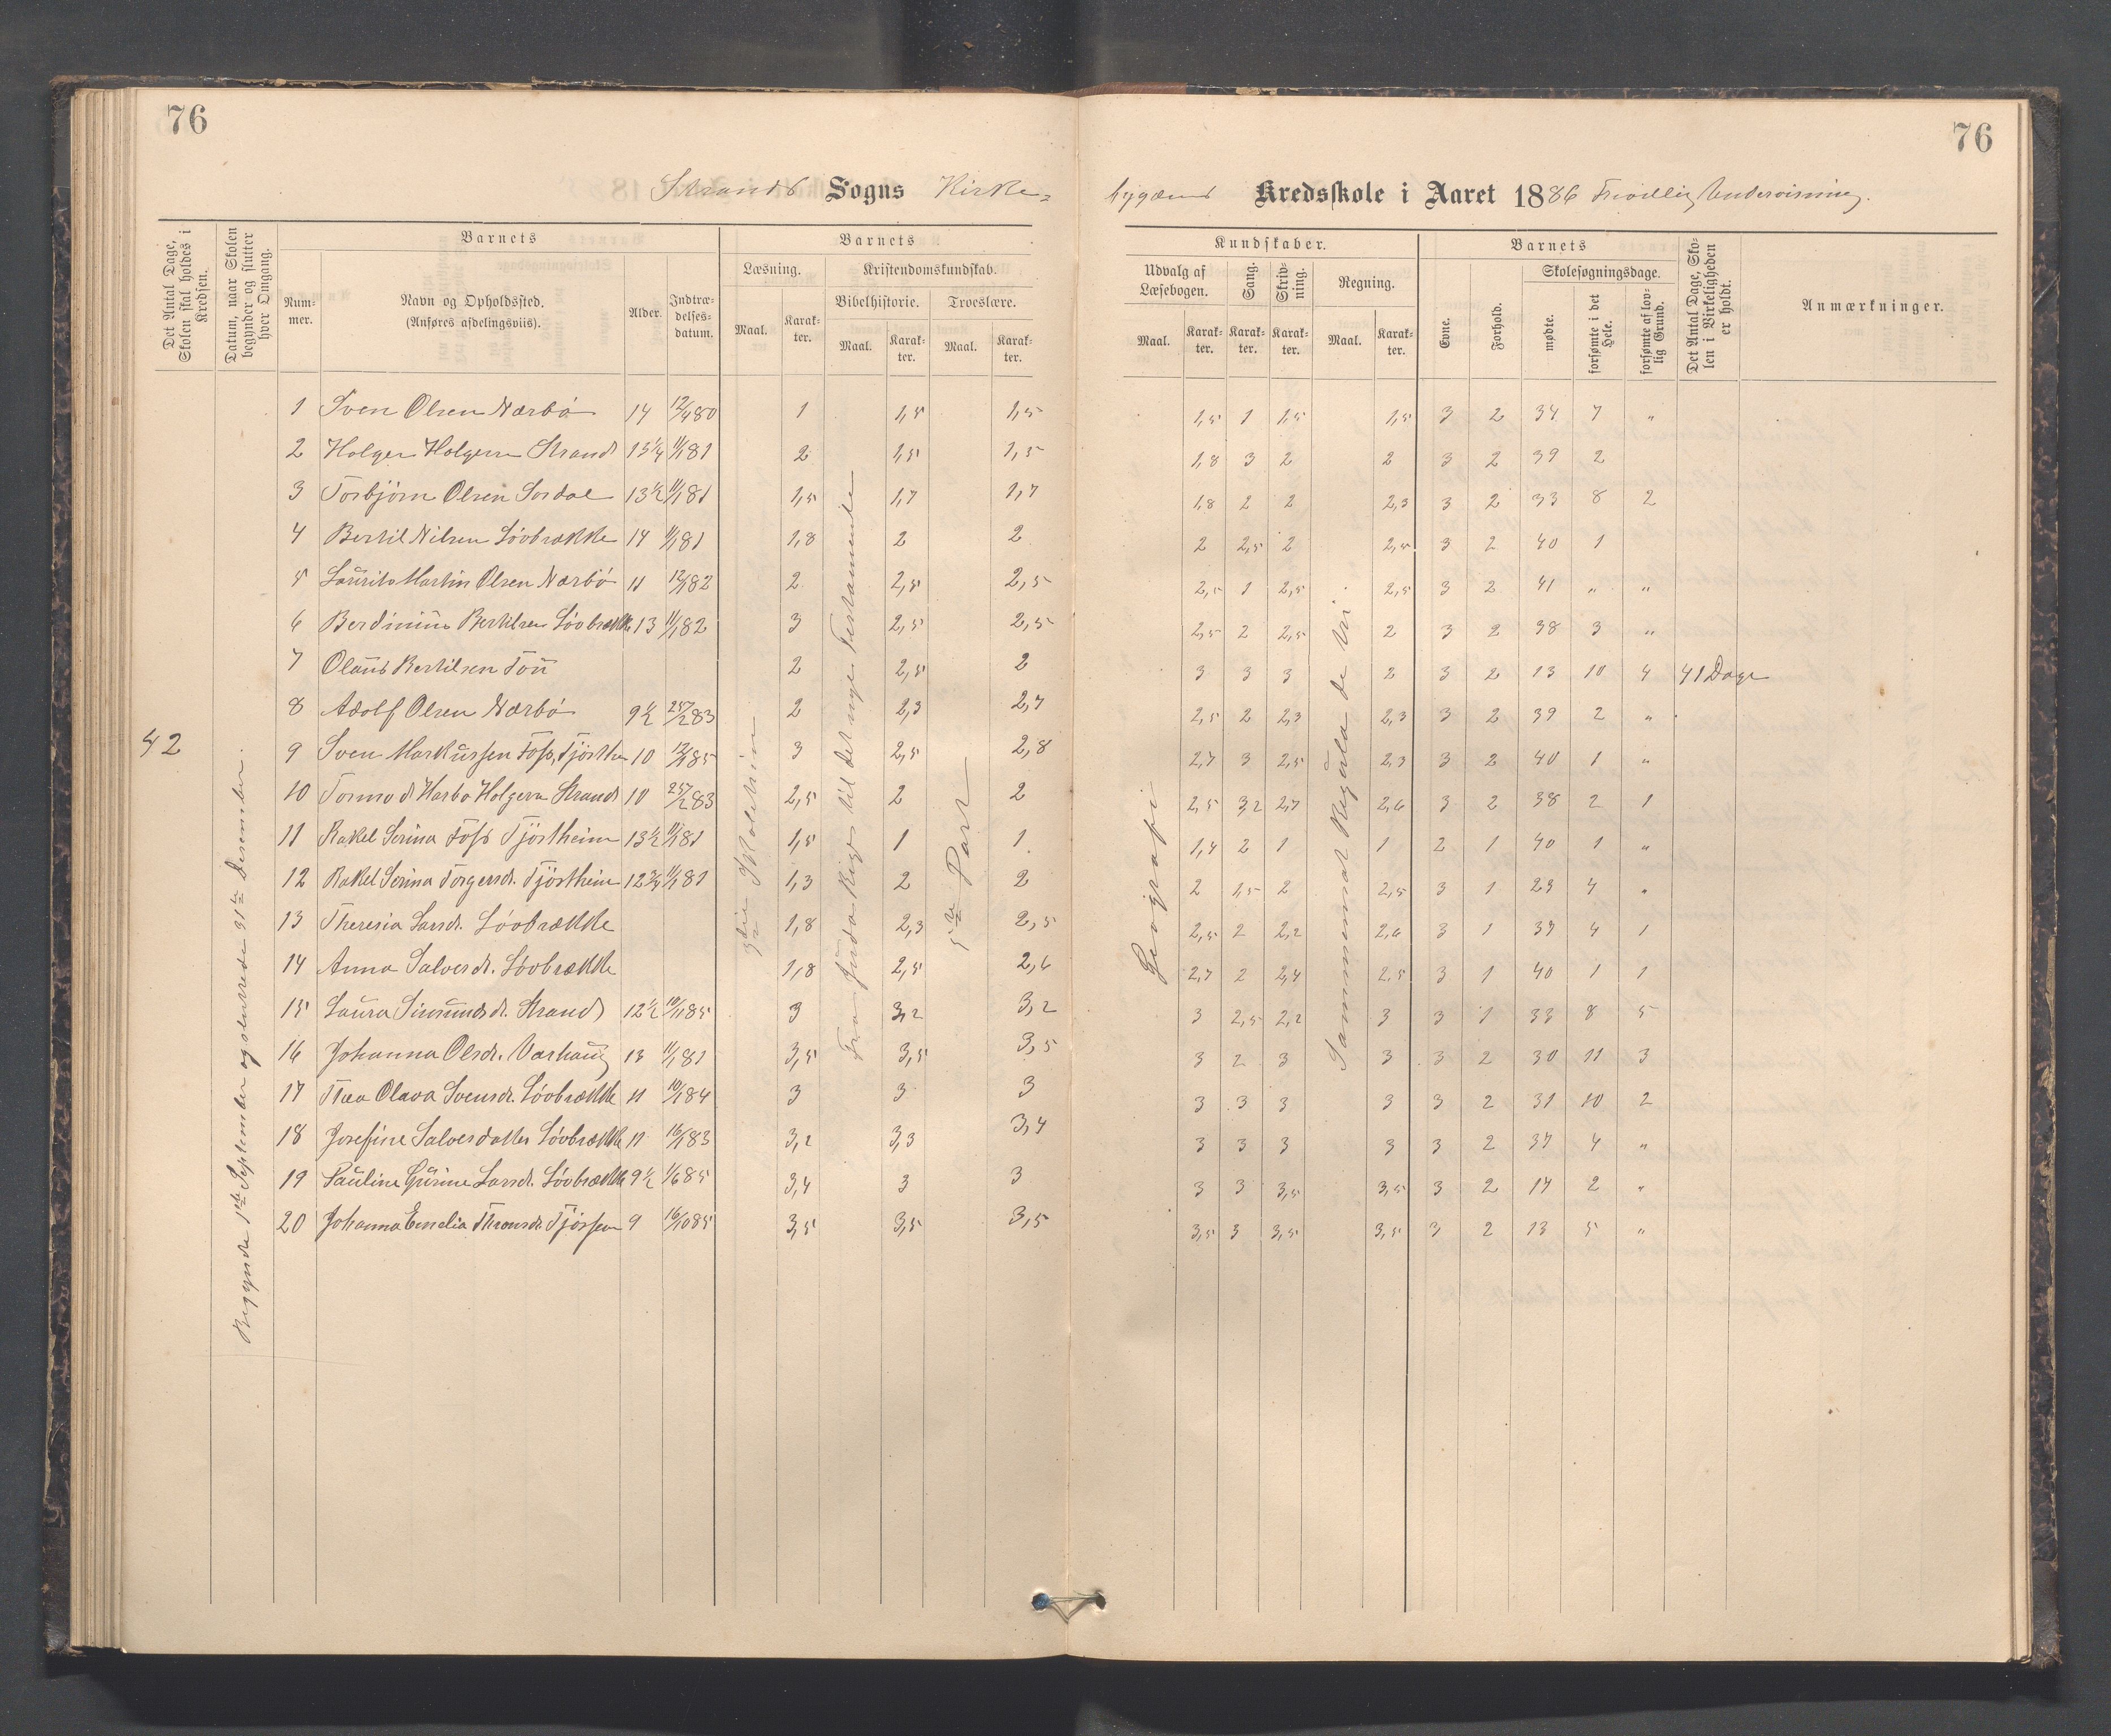 76
76
Strands Sogns Kirke- bygdens Kredsskole i Aaret 1886 Frivillig Undervisning.
Det Antal Dage, Skolen skal holdes i Kredsen.
Datum, naar Skolen begynder og slutter hver Omgang.
Barnets
Nummer.
Navn og Opholdssted. (Anføres afdelingsviis).
Alder.
Indtrædelsesdatum.
Barnets
Læsning.
Maal.
Karakter.
Kristendomskundskab.
Bibelhistorie.
Maal.
Karakter.
Troeslære.
Maal.
Karakter.
Kundskaber.
Udvalg af Læsebogen.
Maal.
Karakter.
Sang.
Karakter.
Skrivning.
Karakter.
Regning.
Maal.
Karakter.
Barnets
Evne.
Forhold.
Skolesøgningsdage.
mødte.
forsømte i det Hele.
forsømte af lovlig Grund.
Det Antal Dage, Skolen i Virkeligheden er holdt.
Anmærkninger.
42
Begyndte 1ste September og sluttede 31te Desember.
Fra Juda Rige til det nye Testamente
5te Part
Geografi
Sammensat Regula de tri.
1 Sven Olsen Nærbø 14 12/4 80 1 1,5 1,5 1,5 1 1,5 1,5 3 2 34 7 "
2 Holger Holgersen Strand 13 1/4 11/1 81 2 1,5 1,5 1,8 3 2 2 3 2 39 2
3 Torbjørn Olsen Sordal 13 1/2 11/1 81 1,5 1,7 1,7 1,8 2 2 2,3 3 2 33 8 2
4 Bertil Nilsen Løvbrække 14 11/1 81 1,8 2 2 2 2,5 2 2,5 3 2 40 1
5 Laurits Martin Olsen Nærbø 11 12/1 82 2 2,5 2,5 2,5 1 2,5 2,5 3 2 41 " "
6 Berdinius Bertilsen Løvbrække 13 11/1 82 3 2,5 2,5 2,5 2 2,5 2 3 2 38 3 "
7 Olaus Bertilsen Tou 2 2,5 2 3 3 3 2 3 2 13 10 4 41 Dage
8 Adolf Olsen Nærbø 9 1/2 25/2 83 2 2,3 2,7 2,5 2 2,3 2,3 3 2 39 2 "
9 Sven Markussen Foss, Tjøsthe 10 12/1 85 3 2,5 2,8 2,7 3 2,5 2,3 3 2 40 1 "
10 Tormod Harbo Holgersen Strand 10 25/2 83 2,5 2 2 2,5 3,2 2,7 2,6 3 2 38 2 1
11 Rakel Serina Foss Tjøstheim 13 1/2 11/1 81 1,5 1 1 1,4 2 1 1 2 1 40 1 "
12 Rakel Serina Torgersdt. Tjøstheim 12 3/4 11/1 81 1,3 2 2 2 1,5 2 2,5 3 1 23 4 "
13 Theresia Larsdt. Løvbrække 1,8 2,3 2,5 2,5 2 2,2 2,6 3 1 37 4 1
14 Anna Salvesdt. Løvbrække 1,8 2,5 2,6 2,7 2 2,4 2,5 3 1 40 1 1
15 Laura Simundsdt. Strand 12 1/2 10/1 85 3 3,2 3,2 3 2,5 2,2 3 3 1 33 8 5
16 Johanna Olsdt. Varhaug 13 11/1 81 3,5 3,5 3,5 3 2 3 3 3 2 30 11 3
17 Thea Olava Svensdt. Løvbrække 11 10/1 84 3 3 3 3 3 3 3 3 2 31 10 2
18 Josefine Salvesdatter Løvbrække 11 16/1 83 3,2 3,3 3,4 3 3 3 3 3 2 37 4 "
19 Pauline Gurine Larsdt. Løvbrække 9 1/2 1/6 85 3,4 3 3 3 3 3,5 3,5 3 2 17 2 "
20 Johanna Emelia Thronsdt. 9 16/10 85 3,5 3,5 3,5 3,5 3 3,5 3,5 3 2 13 5 "